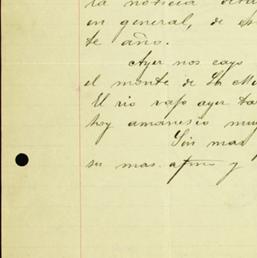 la noticia
en general, de es
te año.
Ayer nos cayo
el monte de la Mu
El rio bajo ayer ta
hoy amanecio muy
Sin mas
su mas afmo y